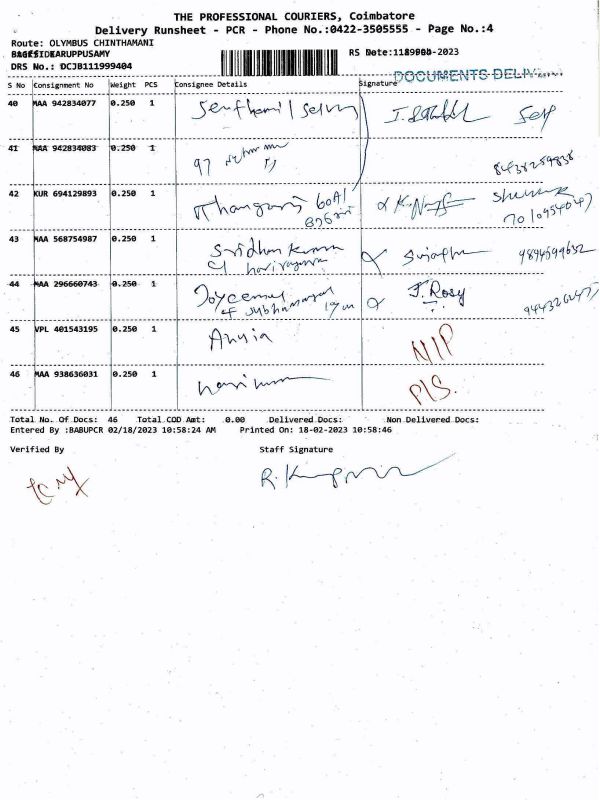 THE PROFESSIONAL COURIERS, Coimbatore
Delivery Runsheet - PCR - Phone No.:0422-3505555 - Page No.:4
Route: OLYMBUS CHINTHAMANI
KARUPPUSAMY
RS Date: -2023
DRS No.: DCJB111999404
DOCUMENTS
S No Consignment No Weight PCS Consignee Details Signature
40 MAA 942834077 0.250 1 Senthamil Selvy Self
41 MAA 942834083 0.250 1 97
42 KUR 694129893 0.250 1 Thangaraj
43 MAA 568754987 0.250 1 Sridhar Kumar Sujatha 9894599632
44 MAA 296660743 0.250 1 J. Rosy
45 VPL 401543195 0.250 1 NIP
46 MAA 938636031 0.250 1 P/S.
Total No. Of Docs: 46 Total COD Amt: 0.00 Delivered Docs: Non Delivered Docs:
Entered By :BABUPCR 02/18/2023 10:58:24 AM Printed On: 18-02-2023 10:58:46
Verified By Staff Signature